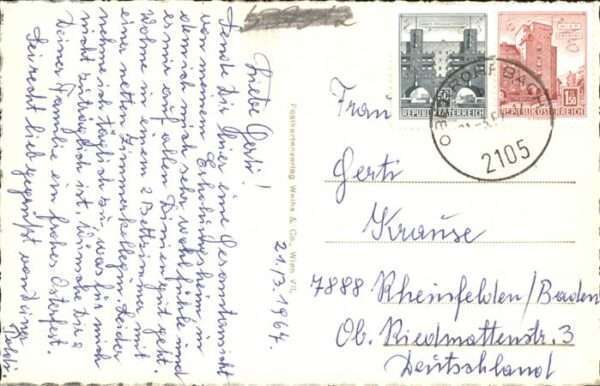 21./3.1967.
Liebe Gerti!
Sende Dir hier eine Gesamtansicht
von meinem Erholungsheim in
dem ich mich sehr wohl fühle und
es mir auf allen Linien gut geht.
Wohne in einem 2 Bettzimmer mit
einer netten Zimmerkollegin. Leider
nehme ich täglich zu, was für mich
nicht zuträglich ist. Wünsche Dir u.
Deiner Familie ein frohes Osterfest.
Sei recht lieb gegrüßt von Deiner
Postkartenverlag Weiha & Co., Wien, VII.
50
REPUBLIK ÖSTERREICH
1.50
REPUBLIK ÖSTERREICH
2105
Frau
Gerti
Krause
7888 Rheinfelden/Baden
Ob. Riedmattenstr. 3
Deutschland